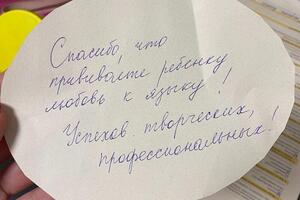 Спасибо, что
прививаете ребенку
любовь к языку!
Успехов творческих,
профессиональных!